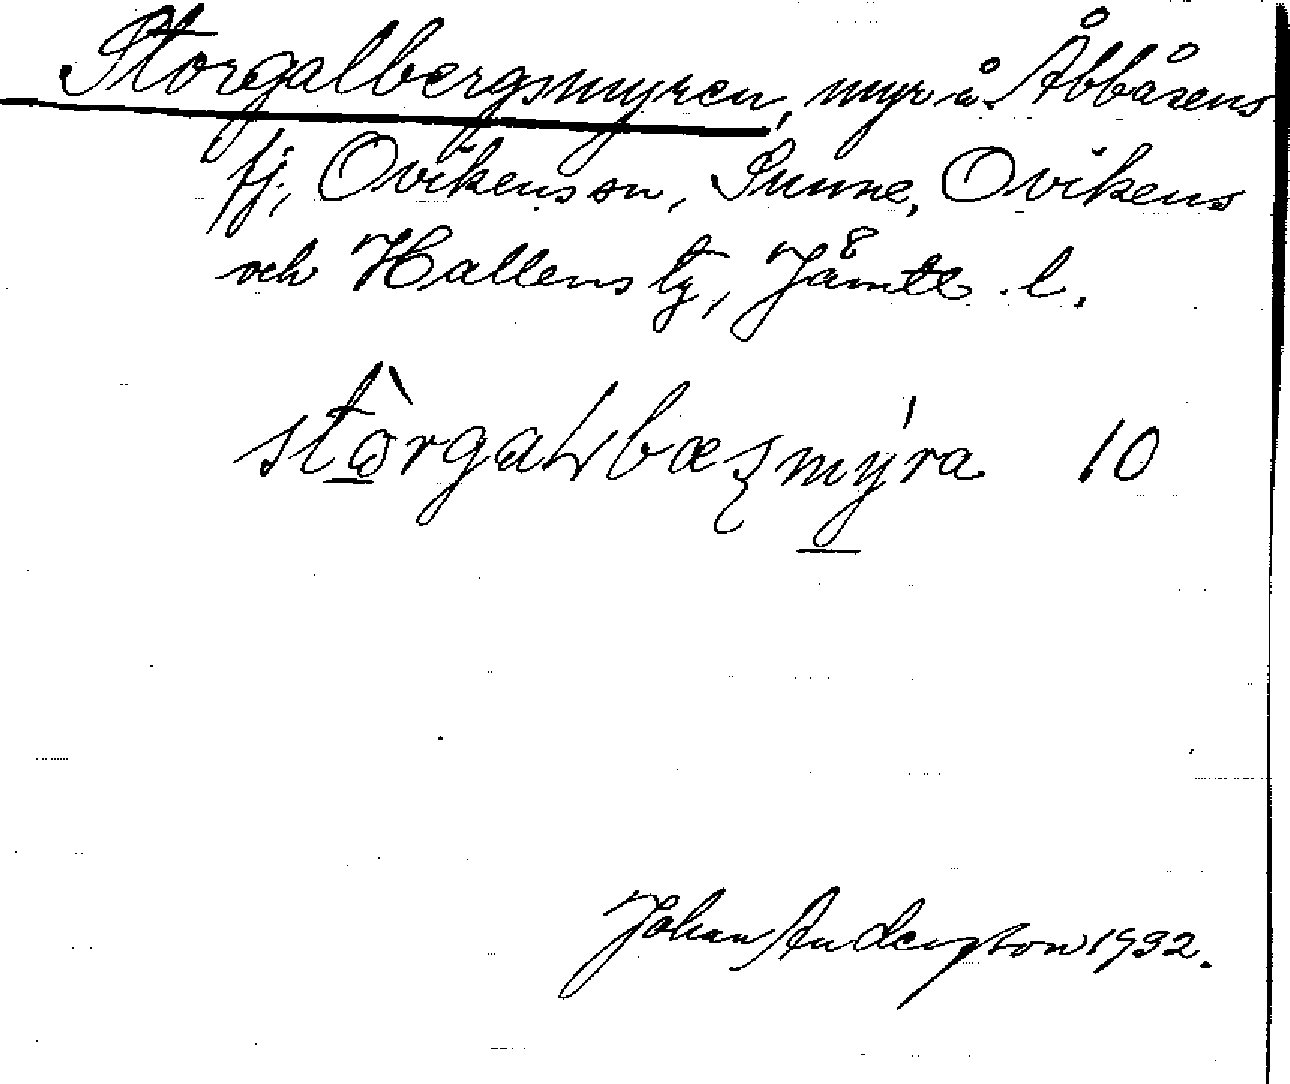 Storgalbergsmyren, myr å Åbbåsens
fj, Ovikens sn, Sunne, Ovikens
och Hallens tg, Jämtl. l.
10
Johan Anderson 1932.